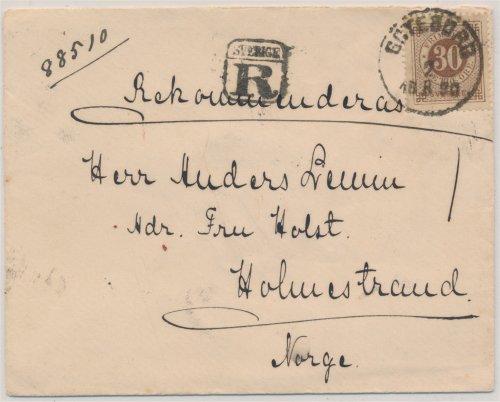 88510
SVERIGE
R
GÖTEBORG
30
Rekommenderas
Herr Anders
Adr. Fru Holst.
Holmestrand.
Norge.